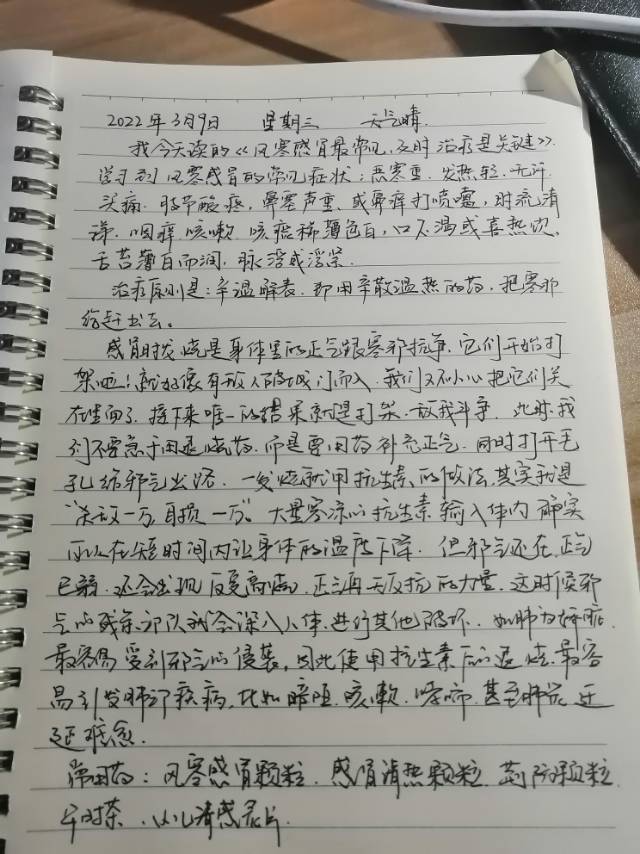 2022年3月9日 星期三 天气晴
我今天读的《风寒感冒最常见,及时治疗是关键》.
学习到风寒感冒的常见症状:恶寒重.发热轻.无汗
头痛.肢节酸疼,鼻塞声重、或鼻痒打喷嚏,时流清
涕.咽痒咳嗽.咳痰稀薄色白,口不渴或喜热饮.
舌苔薄白而润.脉浮或浮紧.
治疗原则是:辛温解表.即用辛散温热的药,把寒邪
给赶出去。
感冒时发烧是身体里的正气跟寒邪抗争.它们开始打
架啦!就好像有敌人破城门而入.我们又不小心把它们关
在里面了.接下来唯一的结果就是打架.敌我斗争.此时,我
们不要急于用退烧药.而是要用药补充正气.同时打开毛
孔给邪气出路.一发烧就用抗生素的做法,其实就是
"杀敌一万,自损一万".大量寒凉的抗生素输入体内确实
可以在短时间内让身体的温度下降.但邪气还在.正气
已弱.还会出现反复高烧.正气再无反抗的力量.这时候邪
气的残余部队就会深入人体.进行其他破坏.如肺为娇脏
最容易受到邪气的侵袭,因此使用抗生素后的退烧.最容
易引发肺部疾病,比如暗哑.咳嗽.哮喘.甚至肺炎.迁
延难愈.
常用药:风寒感冒颗粒.感冒清热颗粒.荆防颗粒.
午时茶.小儿清感灵片.